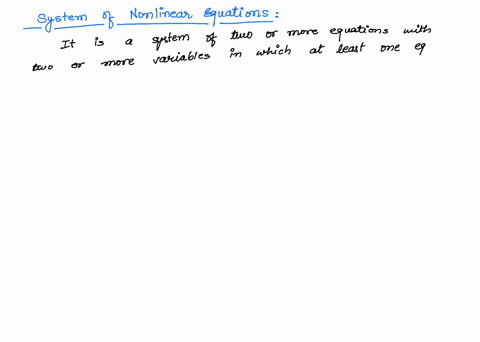 System of Nonlinear Equations :
It is a system of two or more equations with
two or more variables in which at least one eq